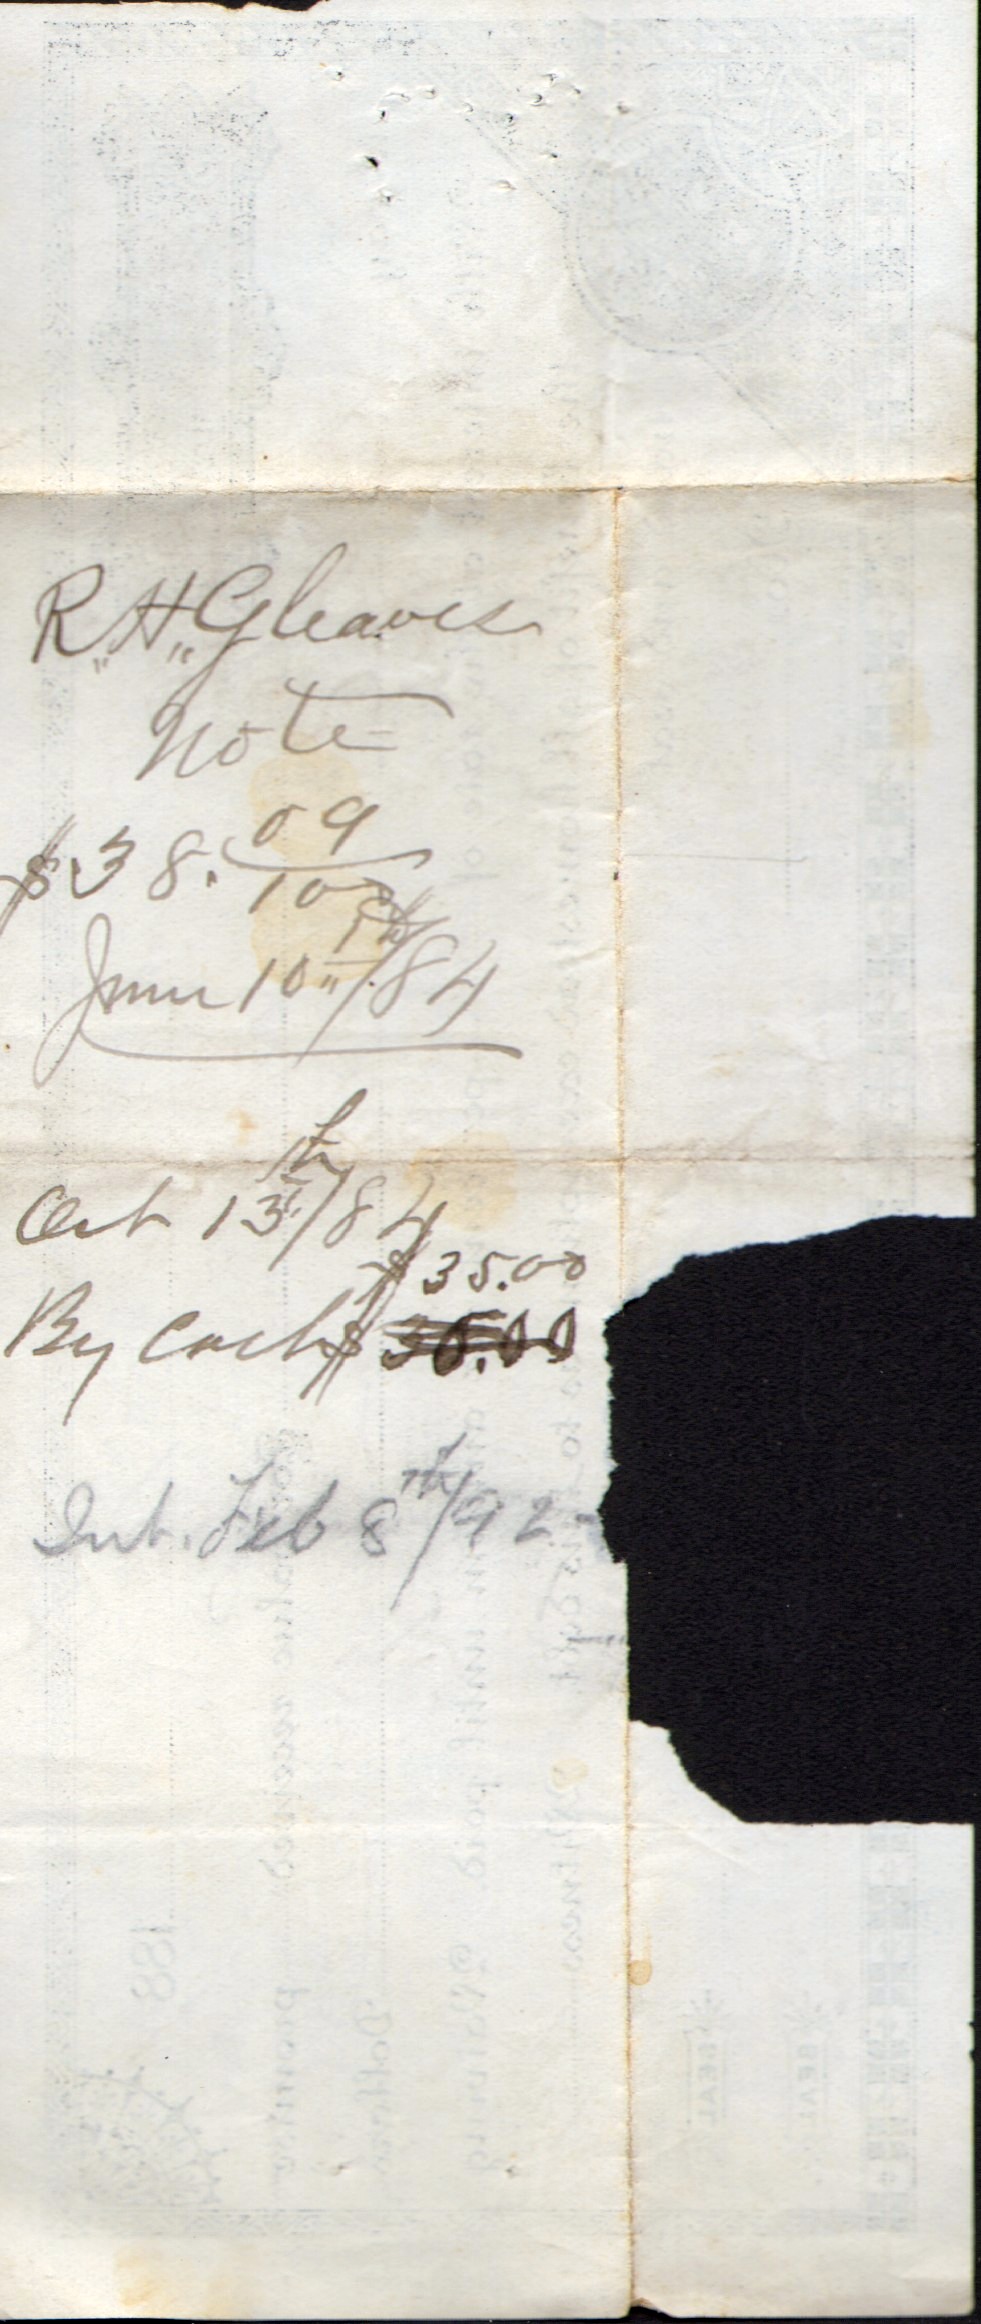 R.H. Gleaves
Note
$38.09/100
June 10th/84
Oct 13th/84
$35.00
By Cash $
Int. Feb 8th/92